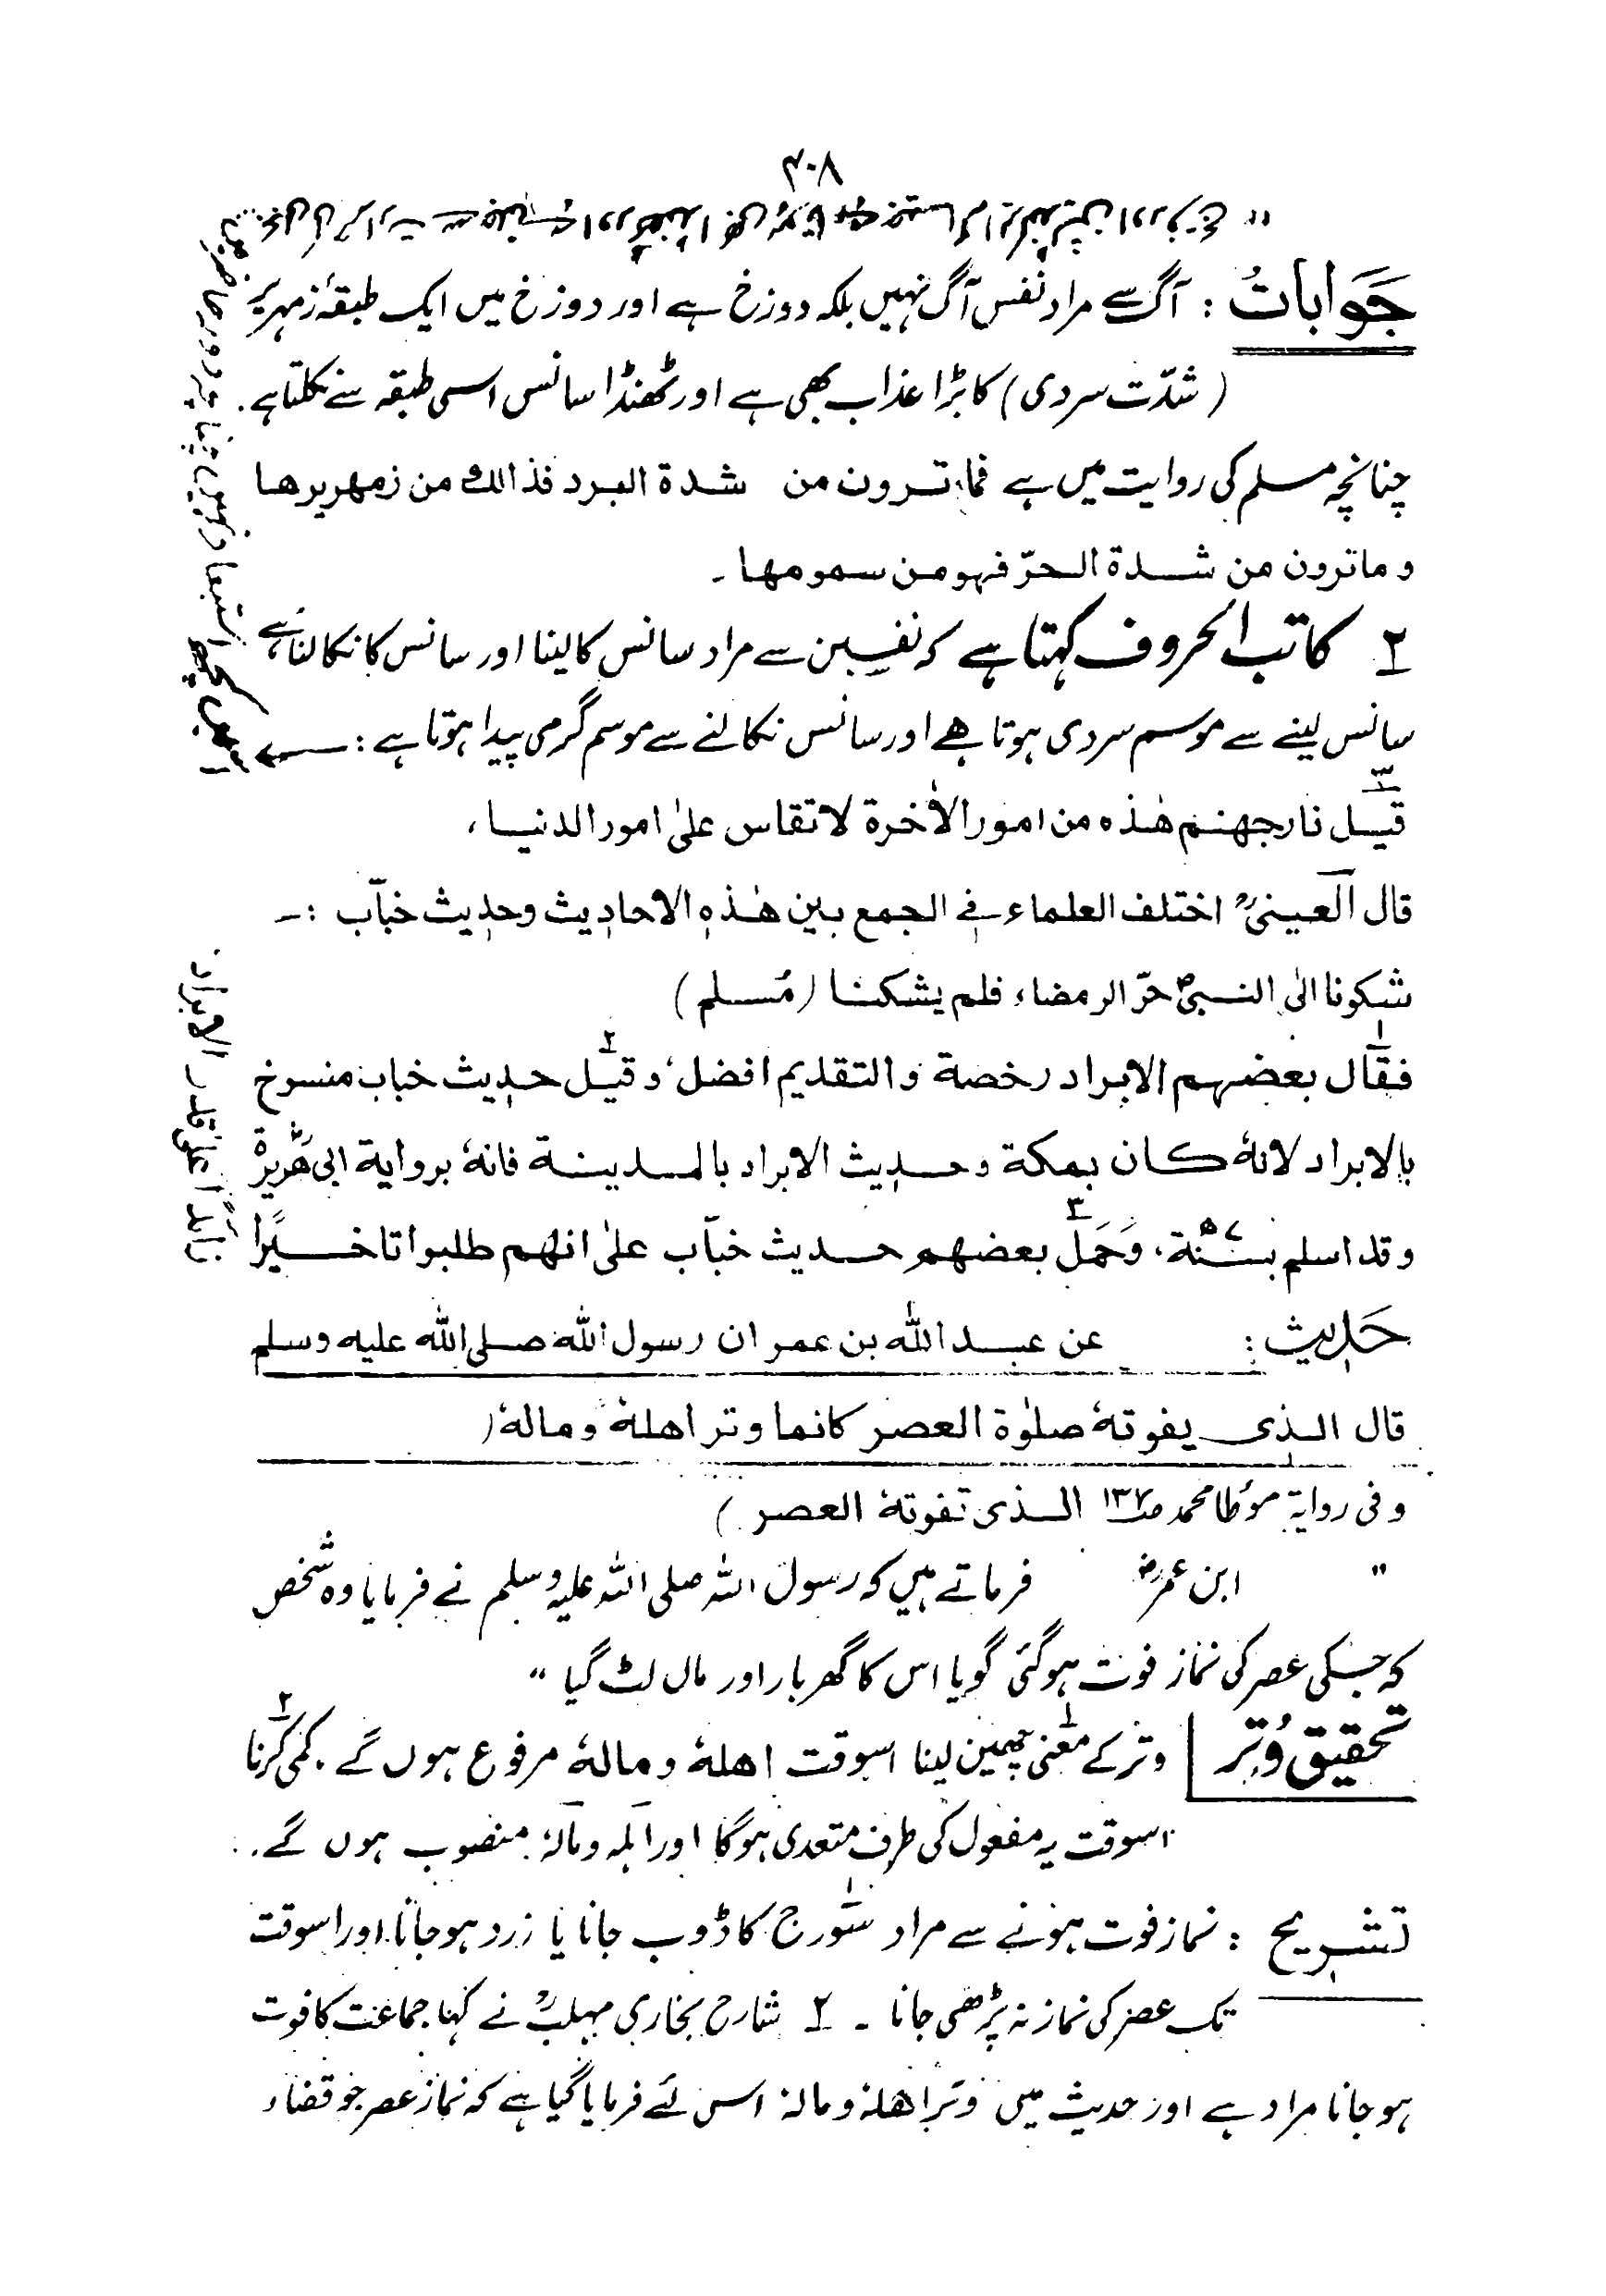 ۴۰۸
جَوَابات : آگ سے مراد نفس آگ نہیں بلکہ دوزخ ہے اور دوزخ میں ایک طبقۂ زمہریر
(شدّت سردی) کا بڑا عذاب بھی ہے اور ٹھنڈا سانس اسی طبقہ سے نکلتا ہے۔
چنانچہ مسلم کی روایت میں ہے فما ترون من شدة البرد فذالك من زمهريرها
و ماترون من شدة الحرّ فهو من سمومها ۔
۲ کاتب الحروف کہتا ہے کہ نفسین سے مراد سانس کا لینا اور سانس کا نکالنا ہے
سانس لینے سے موسم سردی ہوتا ہے اور سانس نکالنے سے موسم گرمی پیدا ہوتا ہے :
اسمیں کچھ استبعاد نہیں
۳ قيل نار جهنم هٰذه من امور الأخرة لا تقاس علىٰ امور الدنيا ،
قال العينىؒ اختلف العلماء فے الجمع بين هٰذه الاحاديث وحديث خبّاب :۔
شكونا الى النبىؐ حرّ الرمضاء فلم يشكنا (مُسلم)
۱ فقال بعضهم الابراد رخصة و التقديم افضل، ۲ و قيل حديث خباب منسوخ
بالابراد لانهٗ كان بمكة وحديث الابراد بالمدينة فانهٗ برواية ابى هريرةؓ
و قد اسلم بسنة ۷ھ، ۳ وَحَمَل بعضهم حديث خبّاب علىٰ انهم طلبوا تاخيرًا
زائدًا علىٰ قدر الابراد۔
حَدِيث : عن عبد الله بن عمر ان رسول الله صلى الله عليه وسلم
قال الذى يفوتهٗ صلوٰة العصر كانما وتر اهلهٗ و مالهٗ (
و فی روایۃ مؤطا محمد الذى تفوتهٗ العصر)
" ابن عمرؓ فرماتے ہیں کہ رسول اللہ صلی اللہ علیہ وسلم نے فرمایا وہ شخص
کہ جسکی عصر کی نماز فوت ہوگئی گویا اس کا گھر بار اور مال لٹ گیا "
تحقیق وُتِر وتر کے ۱ معنی چھین لینا اسوقت اهلهٗ و مالهٗ مرفوع ہوں گے ۔ ۲ کمی کرنا
اسوقت یہ مفعول کی طرف متعدی ہوگا اور اہلہ و مالہٗ منصوب ہوں گے ۔
تشریح : نماز فوت ہونے سے مراد ۱ سورج کا ڈوب جانا یا زرد ہوجانا اور اسوقت
تک عصر کی نماز نہ پڑھی جانا ۔ ۲ شارح بخاری مہلبؒ نے کہا جماعت کا فوت
ہو جانا مراد ہے اور حدیث میں وتر اهلهٗ و مالهٗ اس لئے فرمایا گیا ہے کہ نماز عصر جو قضاء